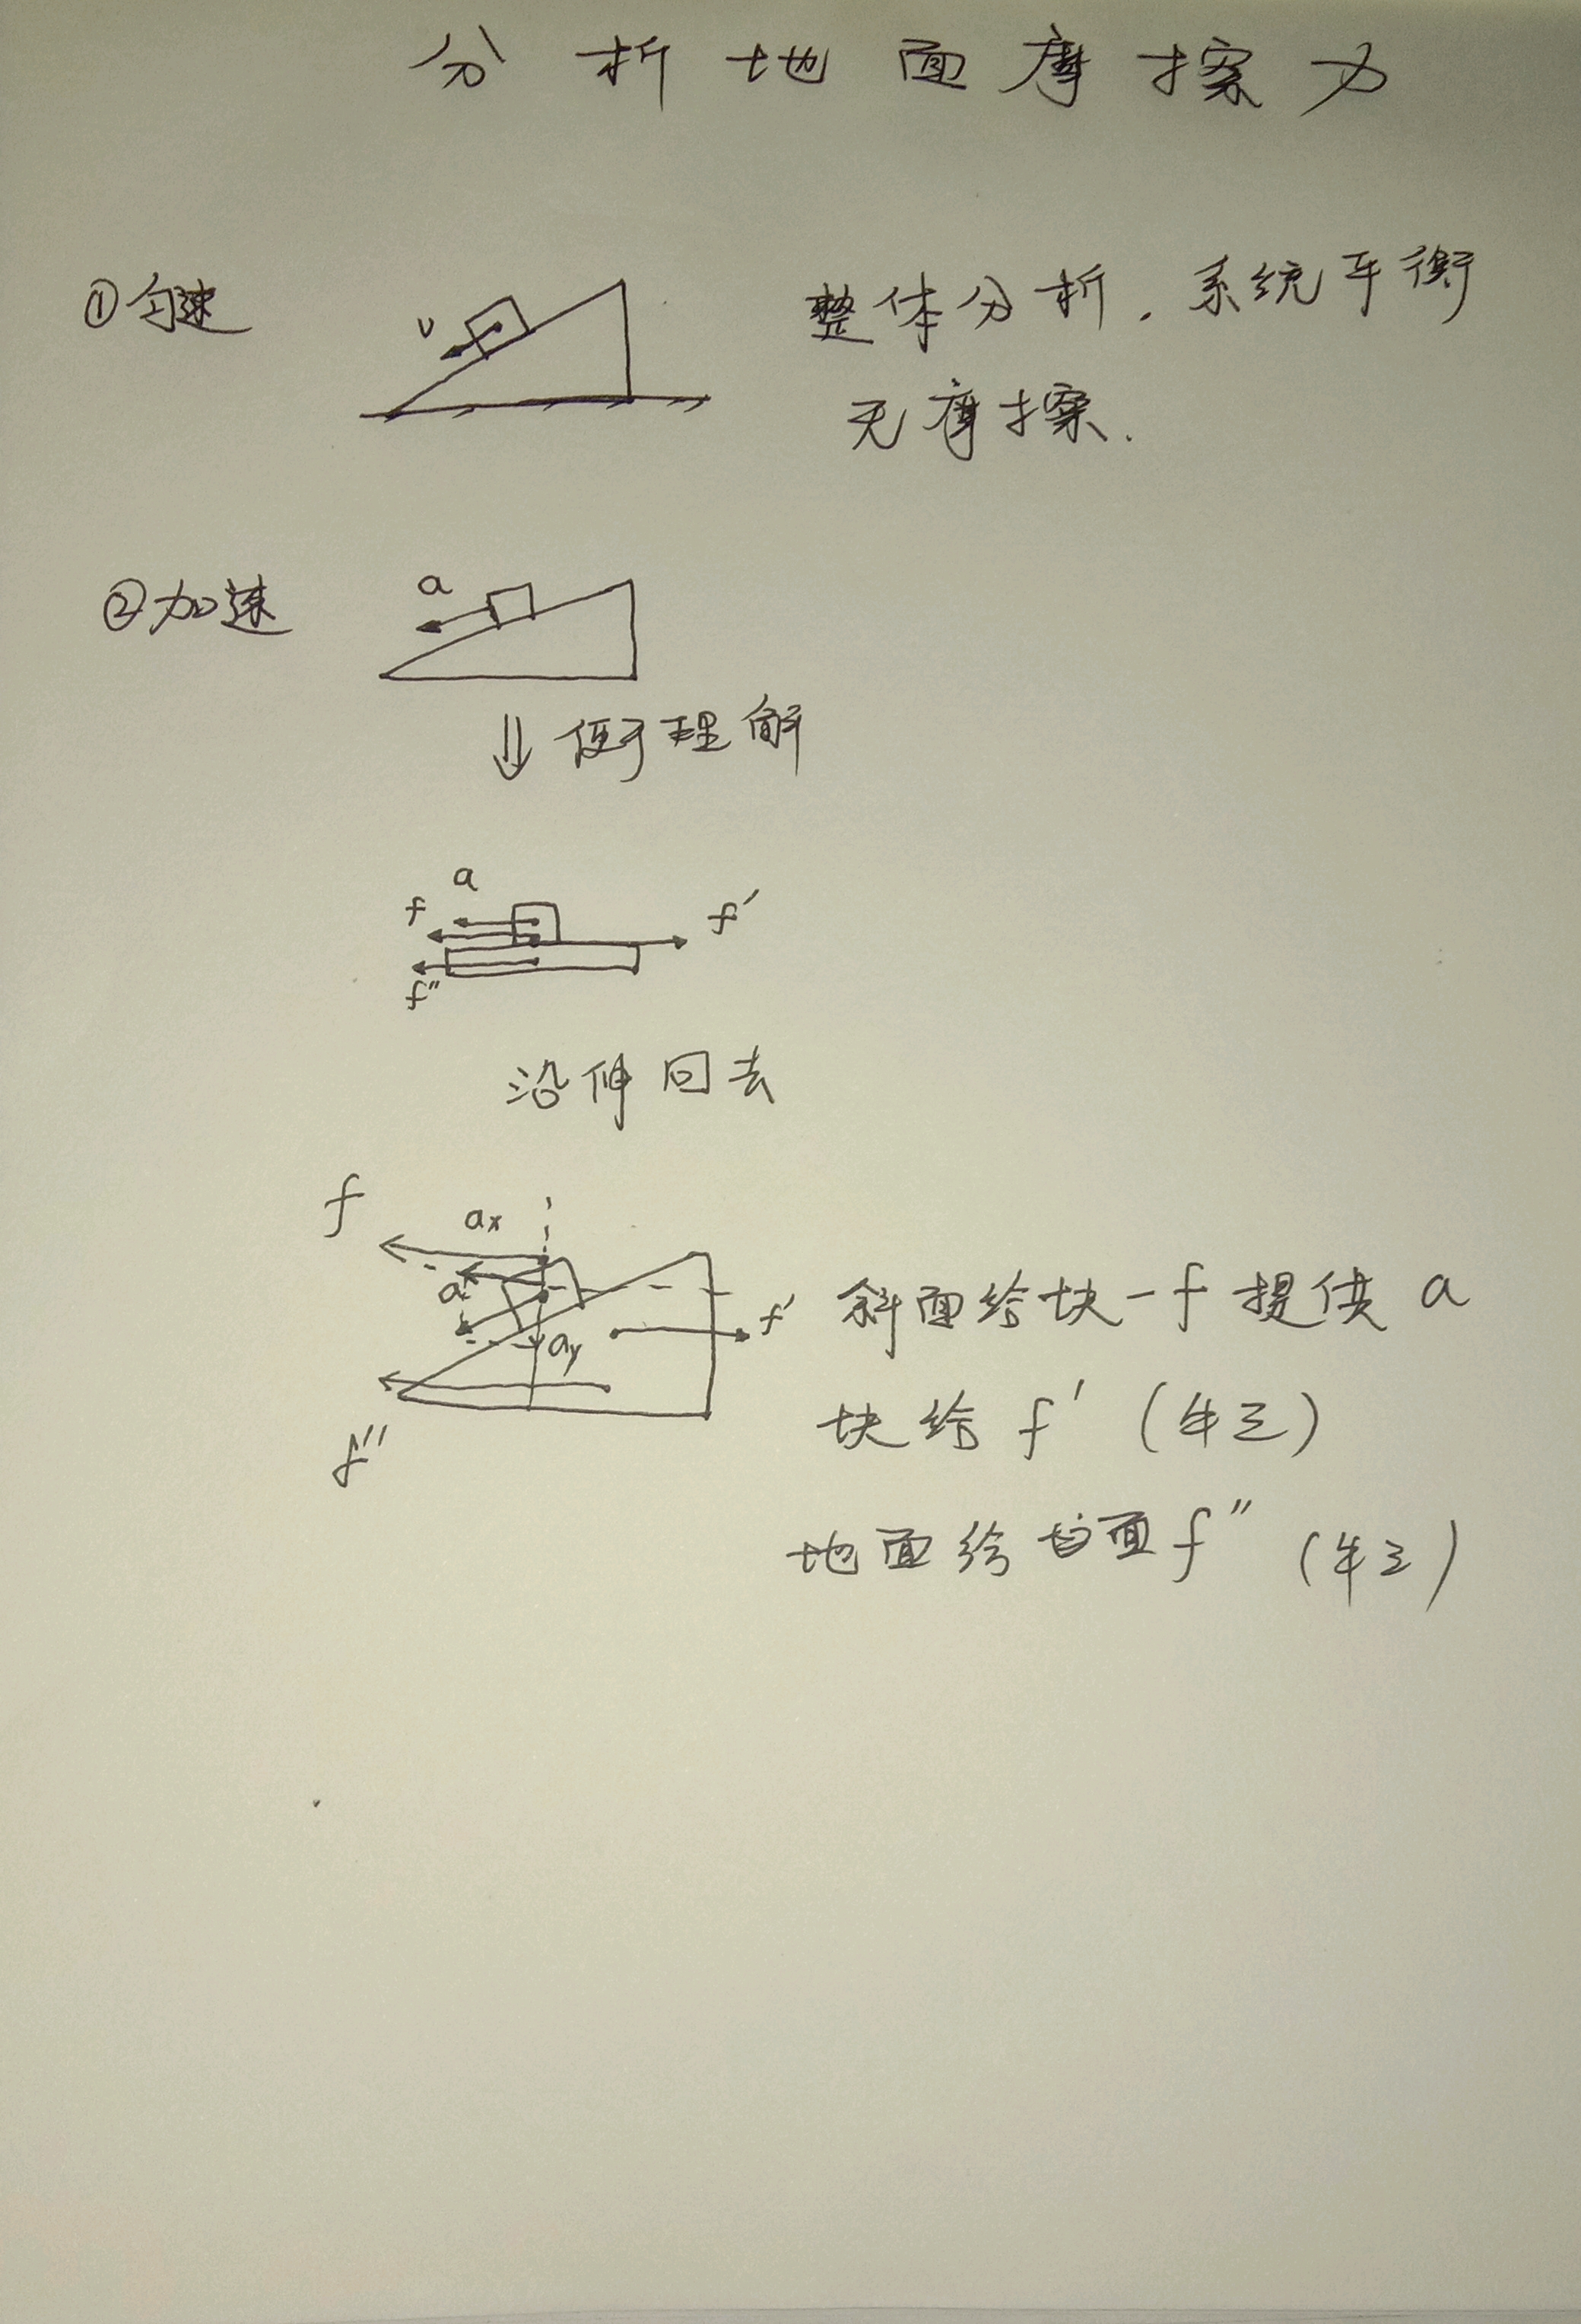 分析地面摩擦力
①匀速
v
整体分析.系统平衡
无摩擦.
②加速
a
⇓ 便于理解
a
f
f'
f"
沿伸回去
f
ax
a
ay
f'
f''
斜面给块一f提供a
块给f'(牛三)
地面给斜面f"(牛三)